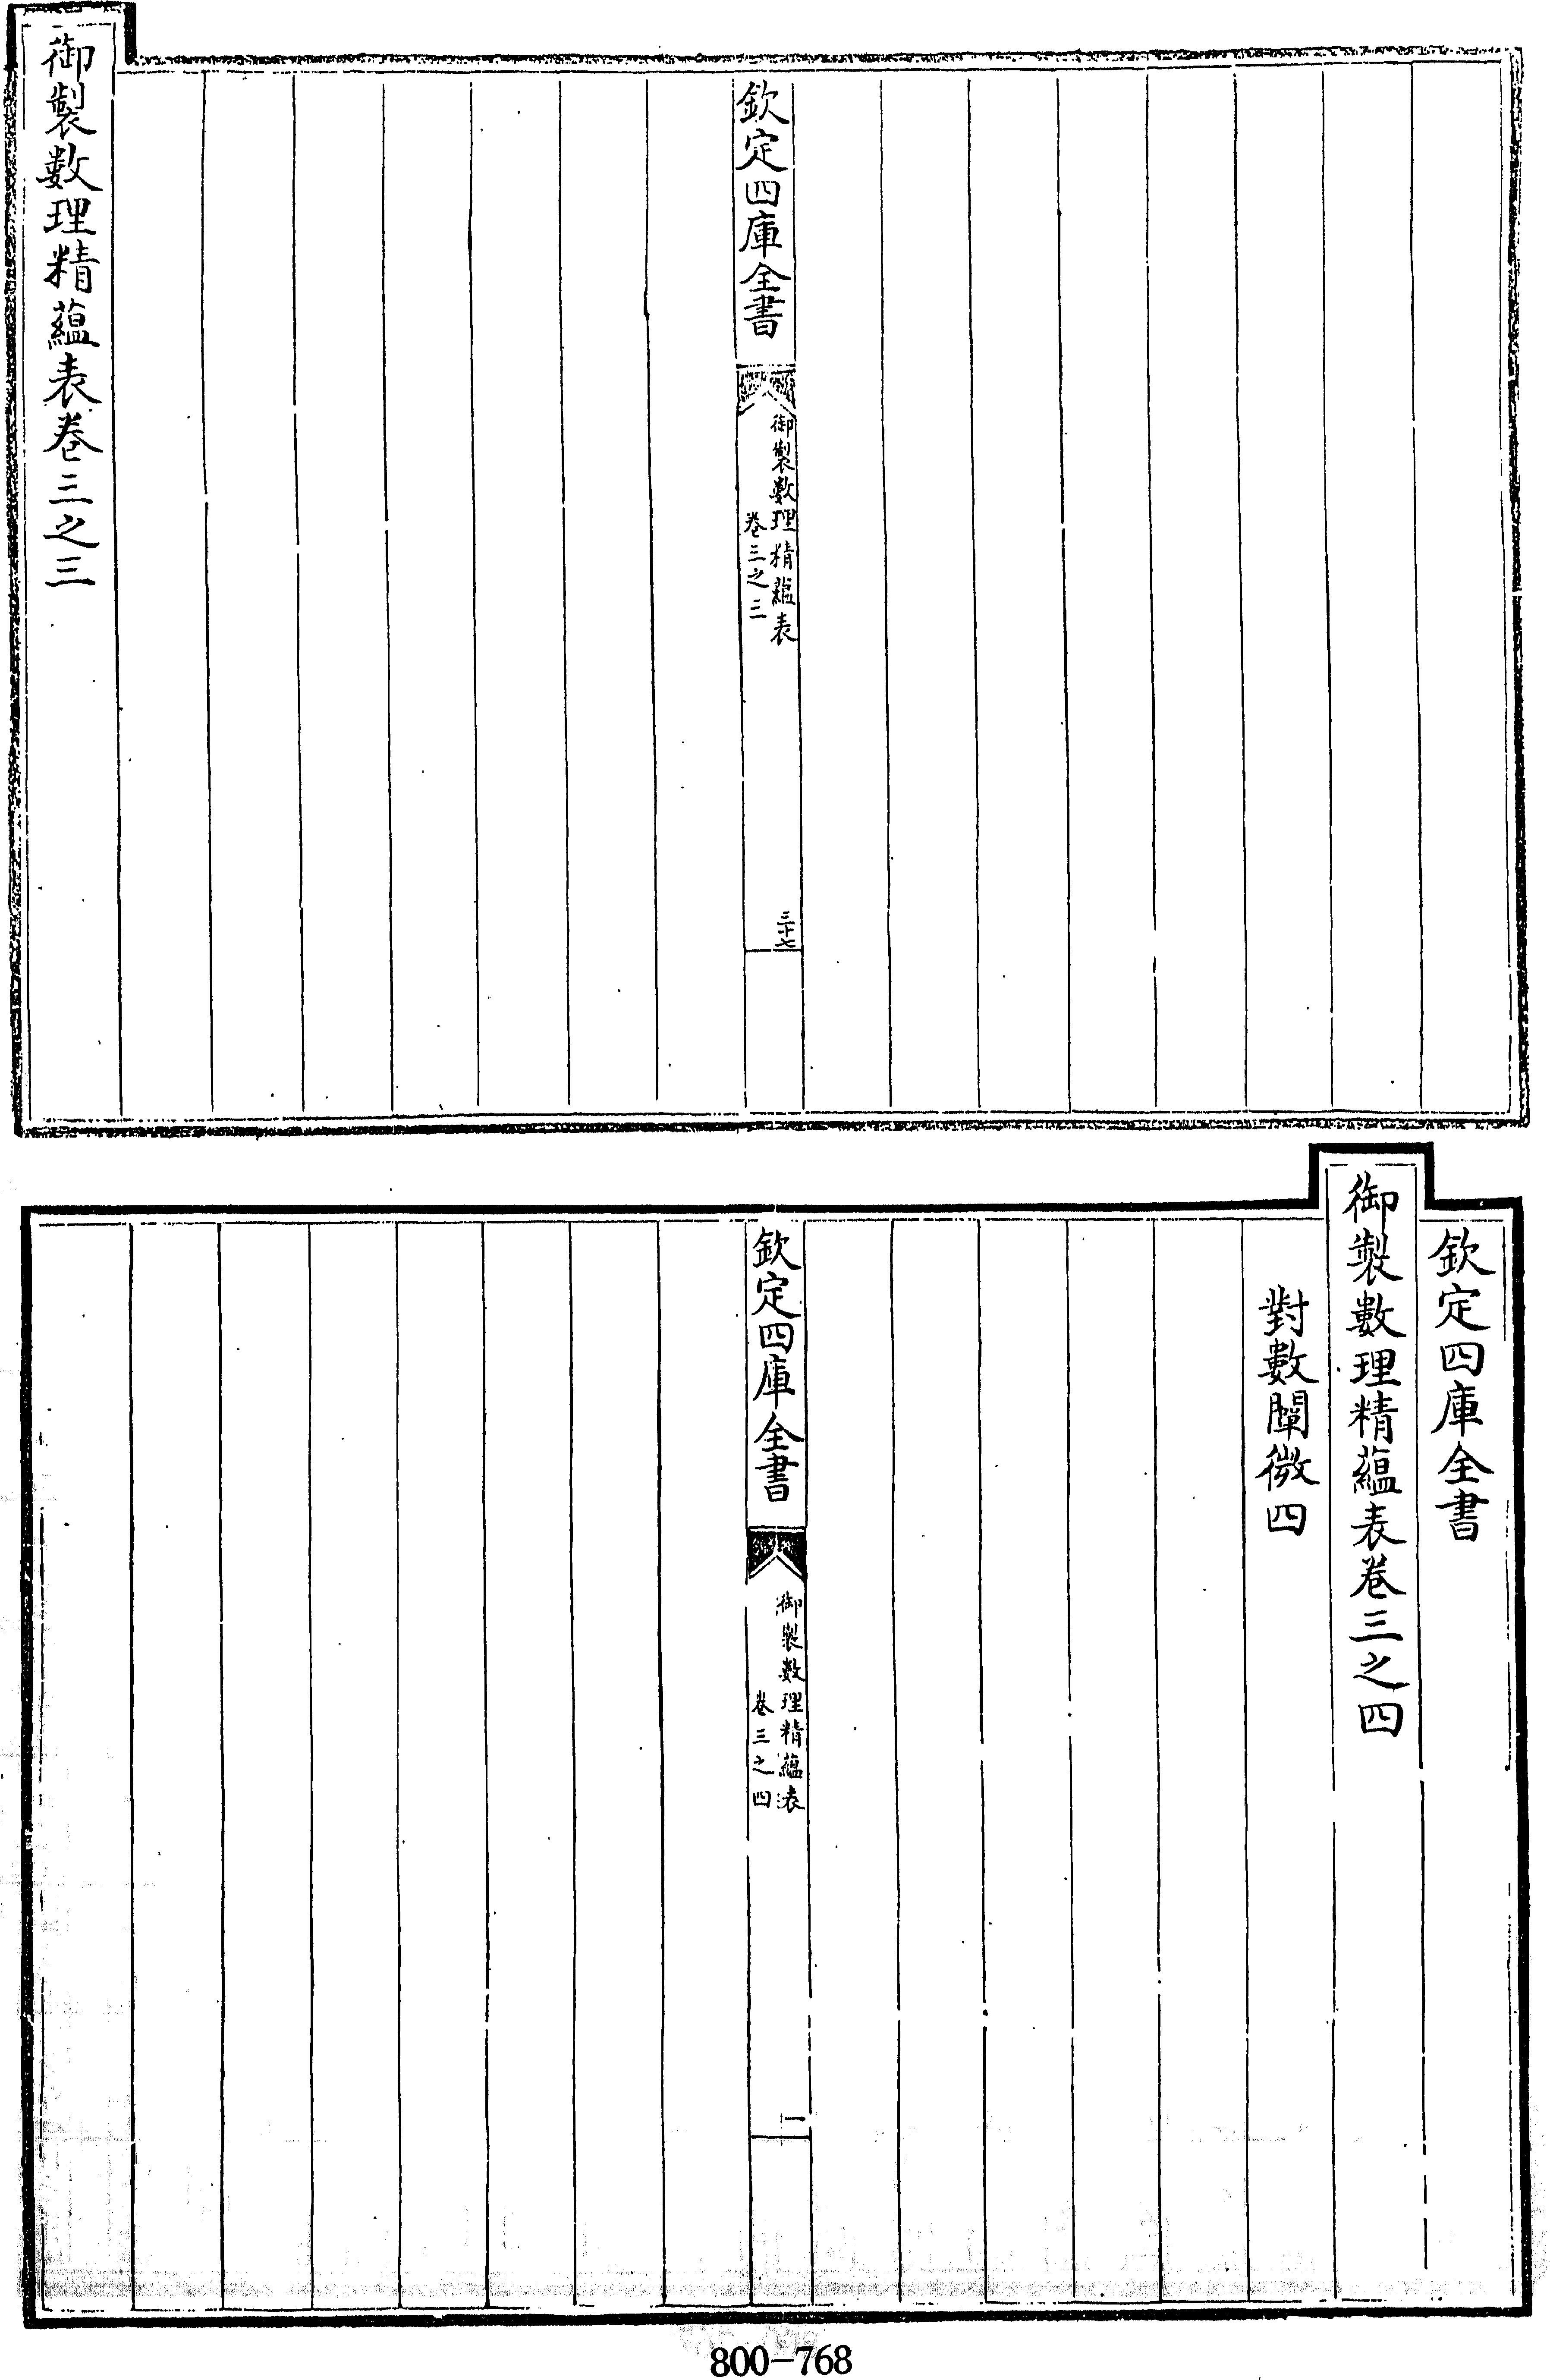 欽定四庫全書
御製數理精蘊表
卷三之三
三十七
御製数理精蘊表卷三之三
欽定四庫全書
御製數理精蘊表卷三之四
對數闡微四
欽定四庫全書
御製數理精蘊表
卷三之四
一
800-768